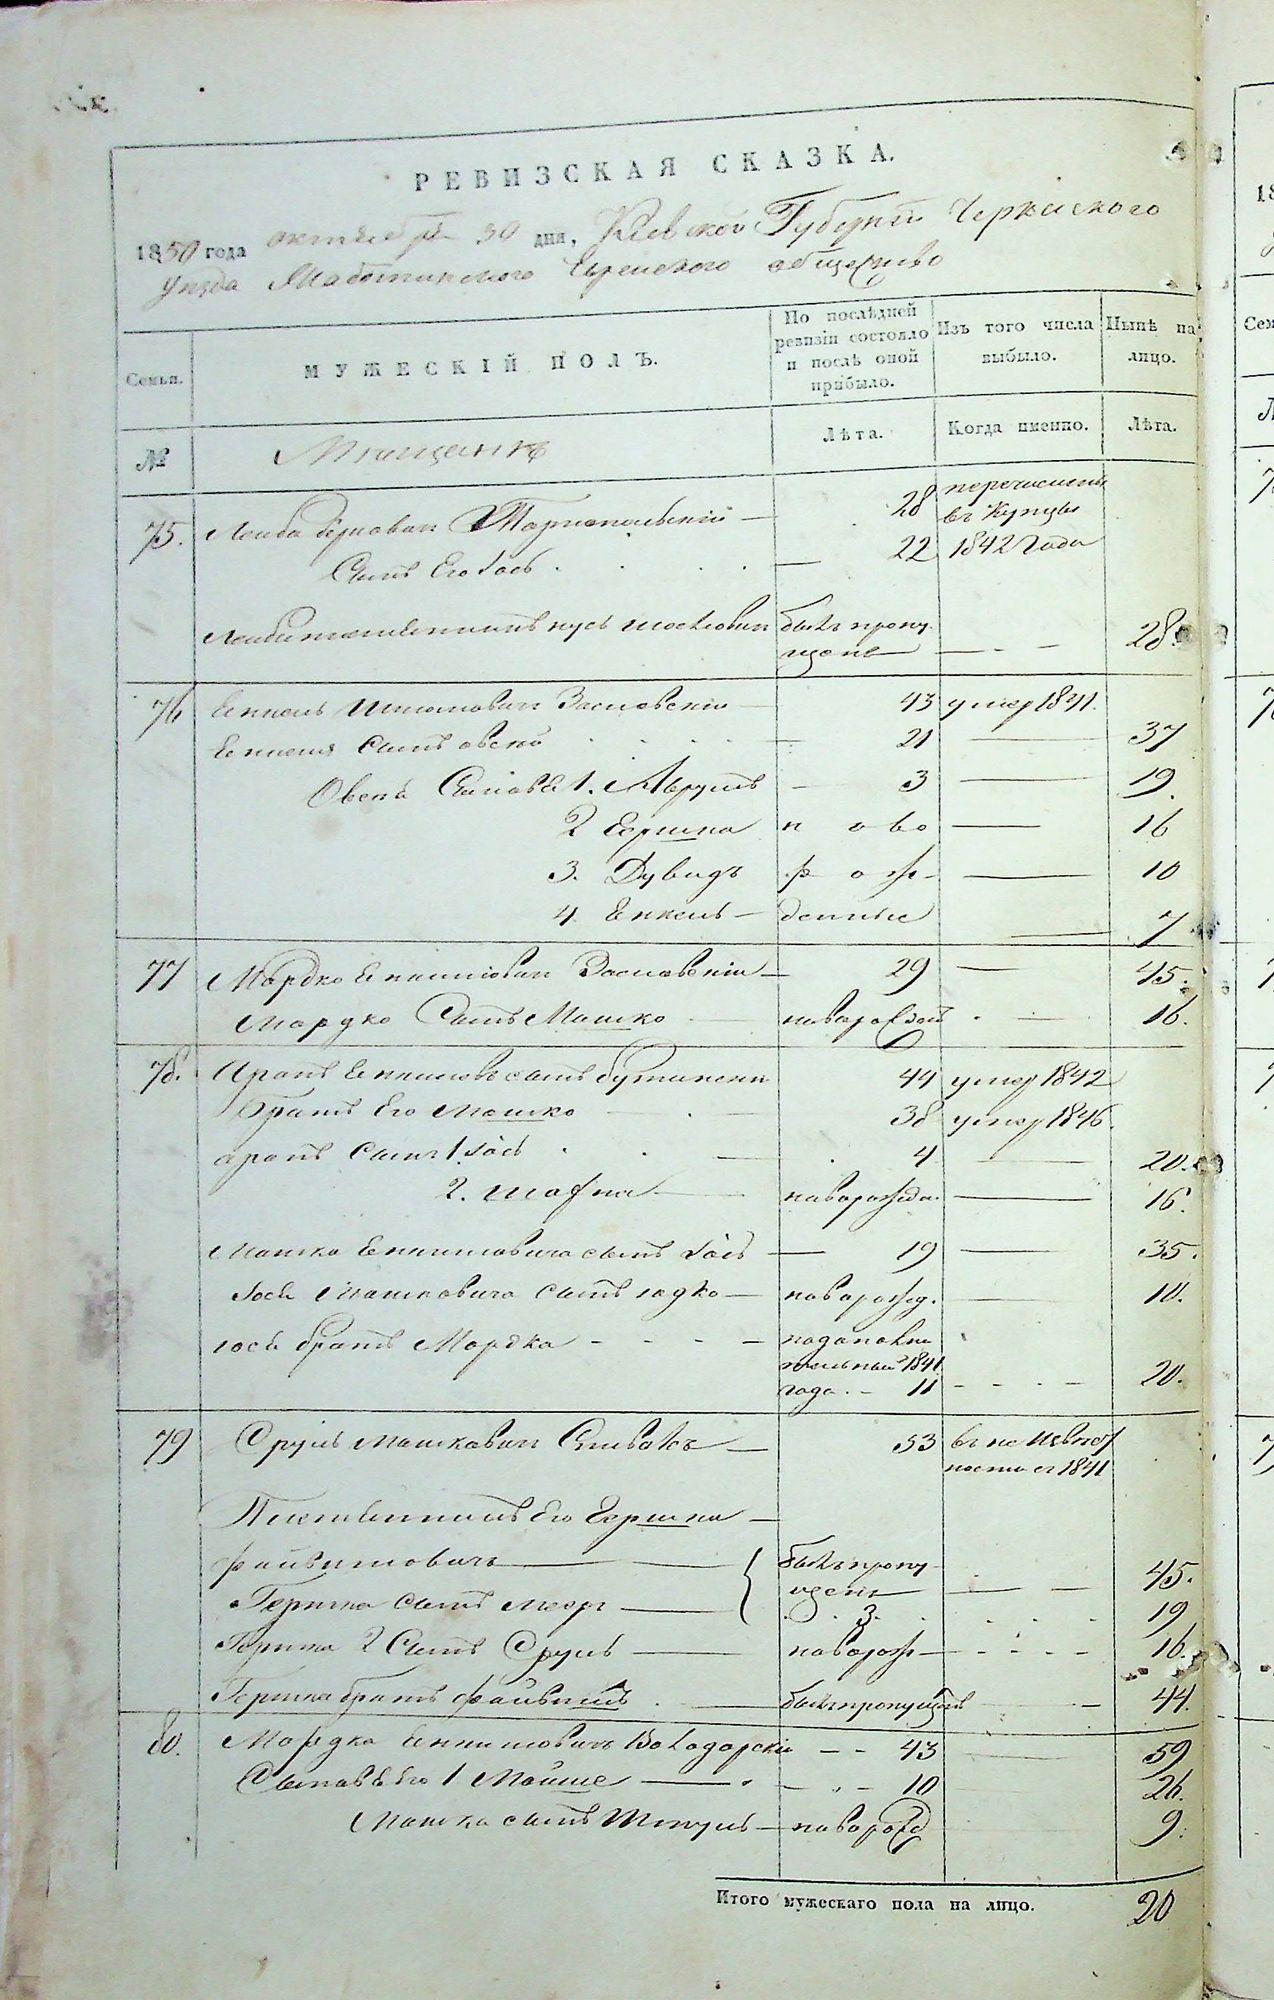 РЕВИЗСКАЯ СКАЗКА.
1850 года октября 30 дня, Киевской Губернии Черкаского
уезда Маботинского Еврейского общество
Семьи.
МУЖЕСКІЙ ПОЛЪ.
По послѣдней ревизіи состояло и послѣ оной прибыло.
Изъ того числа выбыло.
Нынѣ на лицо.
№
Мещане
Лѣта.
Когда именно.
Лѣта.
75. Лейба Берковичъ Тарнопольскій — 28 перечислены въ Купцы
Сынъ Его Іось 22 1842 года
Лейби племянникъ Нусь Иоселович былъ пропущенъ — 28.
76 Енкель Ицковичъ Заславскій — 43 умер 1841.
Енкеля сынъ Овсей 21 — 37
Овсея Сыновья 1. Аврумъ — 3 — 19.
2 Гершка ново — 16
3. Дувидъ рож — 10
4. Енкель — денные — 7
77 Мордко Енкелевичъ Заславскій — 29 — 45.
Мордко Сынъ Мошко новорожден — 16.
78. Аронъ Енкелевъ сынъ 44 умер 1842
Братъ Его Мошко 38 умер 1846.
Аронъ Сынъ 1 Іось 4 — 20.
2. новорожде. — 16.
Мошка Енкелевича сынъ Іось — 19 — 35.
Іося Мошковича Сынъ — новорожд. — 10.
Іося братъ Мордка — по дополнительной 1841 года. — 11 — 20.
79 Сруль Мошковичъ Спивакъ — 53 въ неизвестности с 1841
Племянникъ Его Гершка —
Файвишовичъ — былъ пропущенъ — 45.
Гершка Сынъ Меер — 3. 19
Гершка 2 Сынъ Сруль — новорож — 16.
Гершка братъ Файвишъ. — былъ пропущенъ — 44.
80. Мордка Енкилевичъ Володарскій — 43 — 59
Сыновья Его 1 Мойше — 10 26.
Мошка сынъ Шмуль — новорожд 9.
Итого мужескаго пола на лицо. 20